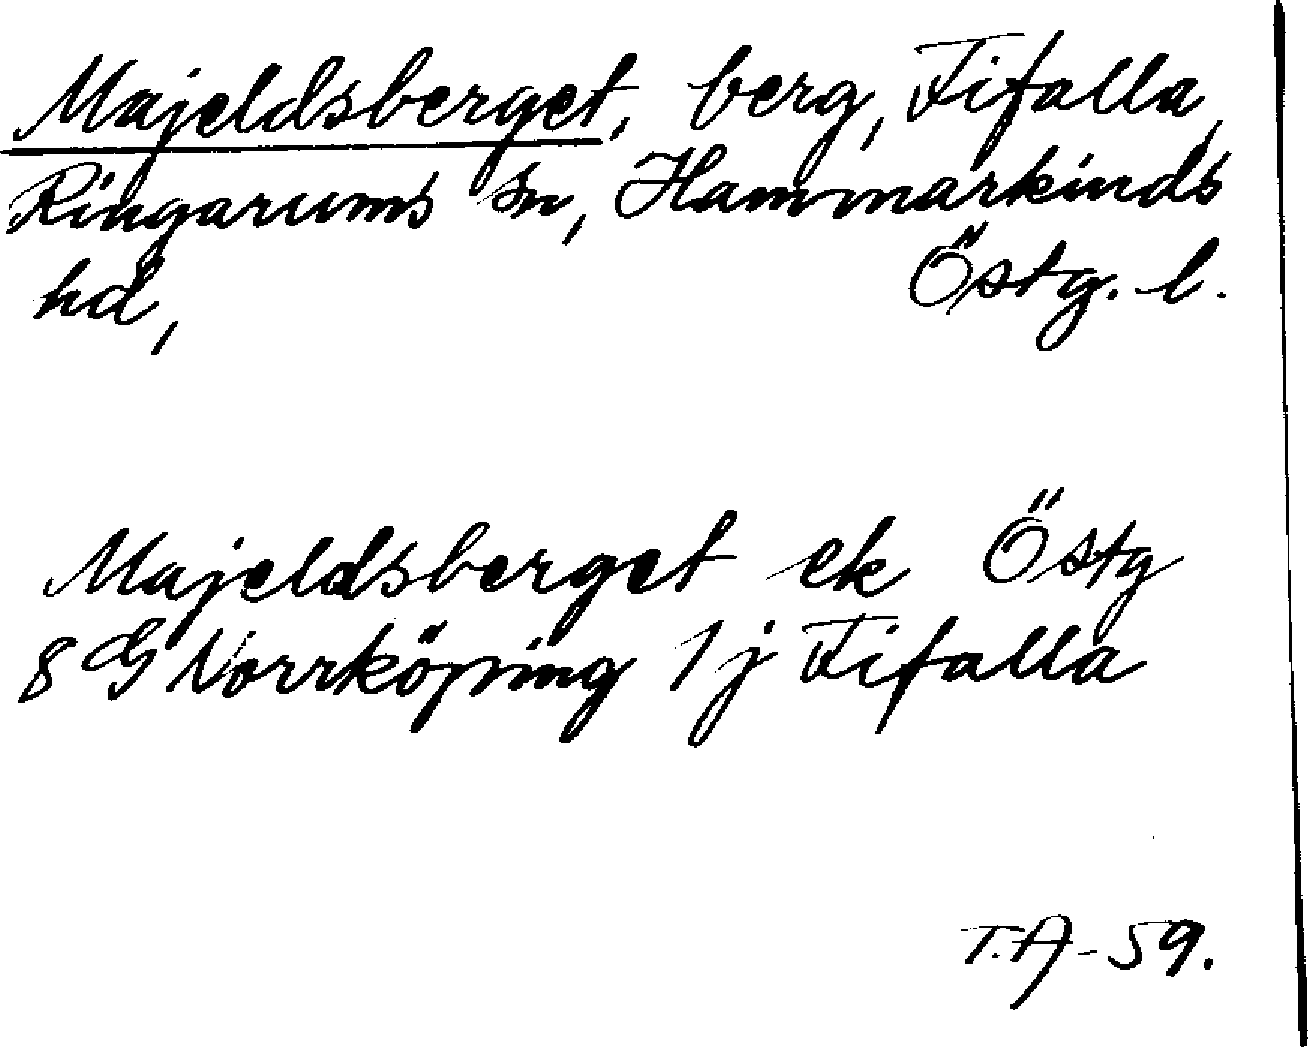 Majeldsberget, berg, Fifalla,
Ringarums sn, Hammarkinds
hd, Östg. l.
Majeldsberget ek Östg
8 G Norrköping 1 j Fifalla
T.A-59.